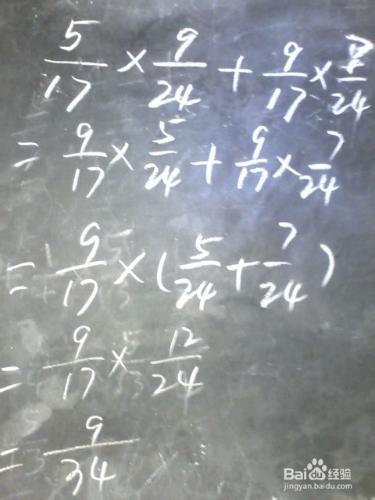 5/17 × 9/24 + 9/17 × 7/24
= 9/17 × 5/24 + 9/17 × 7/24
= 9/17 × (5/24 + 7/24)
= 9/17 × 12/24
= 9/34
Baidu经验
jingyan.baidu.com